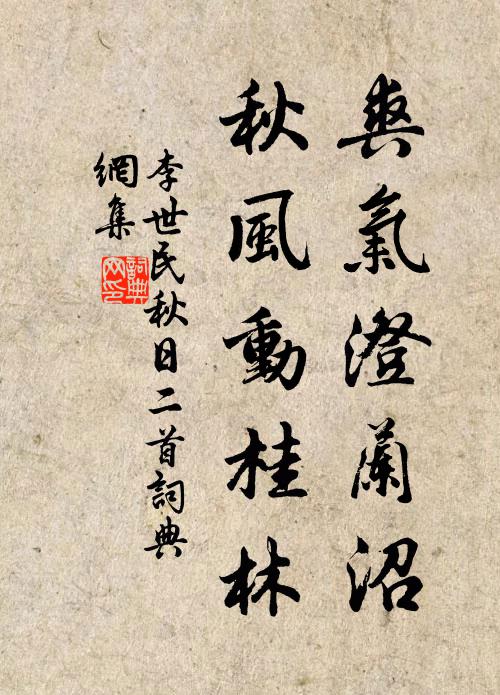 爽氣澄蘭沼
秋風動桂林
李世民秋日二首詞典
網集
詞典
网印